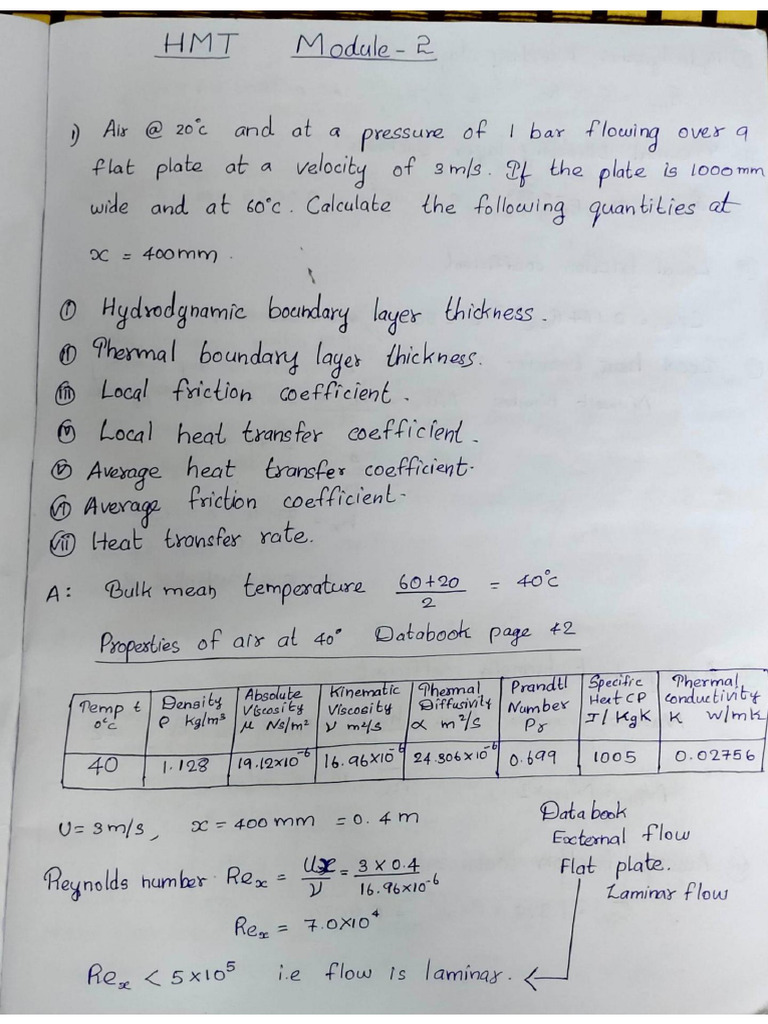 HMT Module - 2
1) Air @ 20°c and at a pressure of 1 bar flowing over a
flat plate at a velocity of 3 m/s. If the plate is 1000 mm
wide and at 60°c. Calculate the following quantities at
x = 400mm.
(i) Hydrodynamic boundary layer thickness.
(ii) Thermal boundary layer thickness.
(iii) Local friction coefficient.
(iv) Local heat transfer coefficient.
(v) Average heat transfer coefficient.
(vi) Average friction coefficient.
(vii) Heat transfer rate.
A: Bulk mean temperature (60+20)/2 = 40°c
Properties of air at 40° Databook page 42
Temp t 0°c | Density ρ Kg/m³ | Absolute Viscosity μ Ns/m² | Kinematic Viscosity ν m²/s | Thermal Diffusivity α m²/s | Prandtl Number Pr | Specific Heat CP J/KgK | Thermal conductivity K W/mk
40 | 1.128 | 19.12x10⁻⁶ | 16.96x10⁻⁶ | 24.306x10⁻⁶ | 0.699 | 1005 | 0.02756
U = 3m/s, x = 400 mm = 0.4 m
Data book
External flow
Flat plate.
Laminar flow
Reynolds number Reₓ = Ux/ν = (3 x 0.4)/(16.96x10⁻⁶)
Reₓ = 7.0x10⁴
Reₓ < 5x10⁵ i.e flow is laminar.